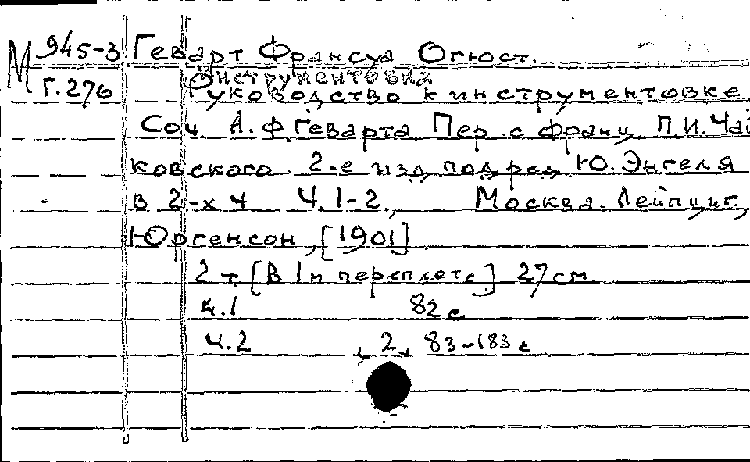 М 945-3 Геварт Франсуа Огюст.
Инструментовка
Г.276 Руководство к инструментовке
Соч А.Ф.Геварта Пер. с франц П.И.Чай
ковского 2-е изд. под ред. Ю.Энгеля
в 2-х ч Ч.1-2, Москва-Лейпциг,
Юргенсон, [1901]
2 т. [В 1м переплете] 27см
ч.1 82с
ч.2 , 2, 83-183с